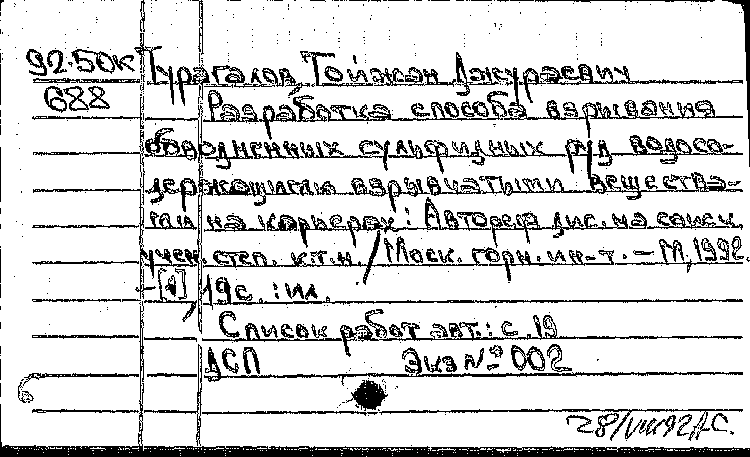 92-50к Турагалов, Тойжан Джураевич
688 Разработка способа взрывания
обводненных сульфидных руд водосо-
держащими взрывчатыми вещества-
ми на карьерах: Автореф. дис. на соиск.
учен. степ. к.т.н. / Моск. горн. ин-т. - М., 1992.
-[1], 19с. : ил.
Список работ авт.: с. 19
ДСП Экз № 002
28/VIII92 Д.С.